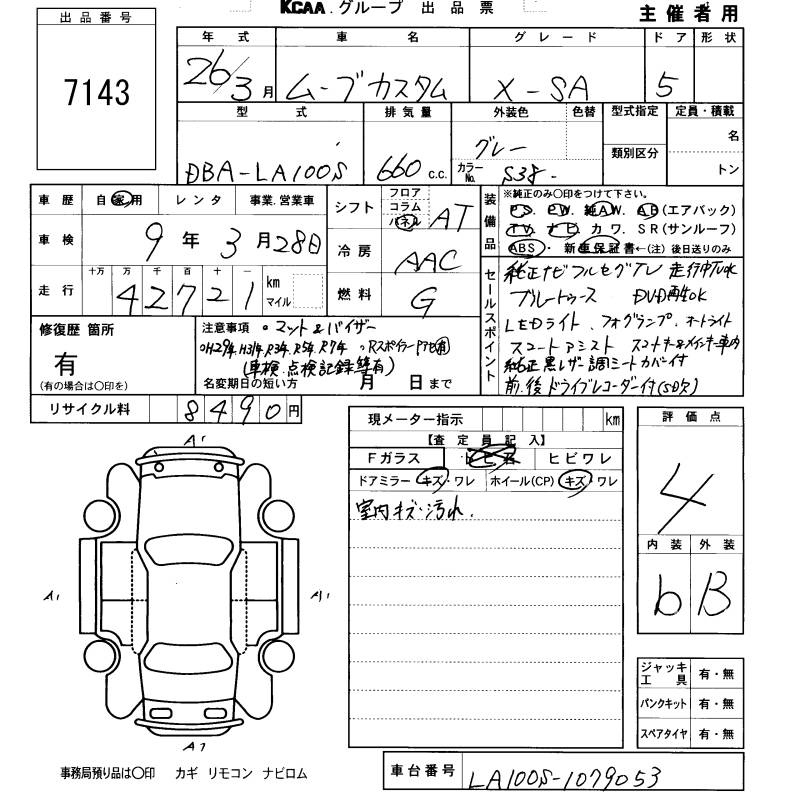 KCAA.グループ 出品票
主催者用
出品番号
7143
年式 車名 グレード ドア 形状
26/3月 ムーブカスタム X-SA 5
型式 排気量 外装色 色替 型式指定 定員・積載
名
類別区分
トン
DBA-LA100S 660 c.c. グレー
カラーNo. S38-
車歴 自家用 レンタ 事業.営業車
車検 9年3月28日
走行 十万 万 千 百 十 一
42721 km マイル
シフト フロア コラム パネル AT
冷房 AAC
燃料 G
装備品
※純正のみ○印をつけて下さい。
PS. PW. 純AW. AB(エアバック)
TV. ナビ カワ. SR(サンルーフ)
ABS・新車保証書←(注)後日送りのみ
セールスポイント
純正ナビ フルセグTV 走行中TVok
ブルートゥース DVD再生ok
LEDライト、フォグランプ、オートライト
スマートアシスト
純正黒レザー調シートカバー付
前.後ドライブレコーダー付(SD欠)
修復歴 箇所
有
(有の場合は○印を)
注意事項 ○マット&バイザー
○H29年.H31年.R3年.R5年.R7年
(車検.点検記録簿有)
名変期日の短い方 月 日まで
リサイクル料 8490円
現メーター指示 km
【査定員記入】
Fガラス トビ石 ヒビワレ
ドアミラー キズ・ワレ ホイール(CP) キズ・ワレ
室内キズ・汚れ.
評価点
4
内装 外装
b B
A1
A1
A1
A7
ジャッキ工具 有・無
パンクキット 有・無
スペアタイヤ 有・無
事務局預り品は○印 カギ リモコン ナビロム
車台番号 LA100S-1079053